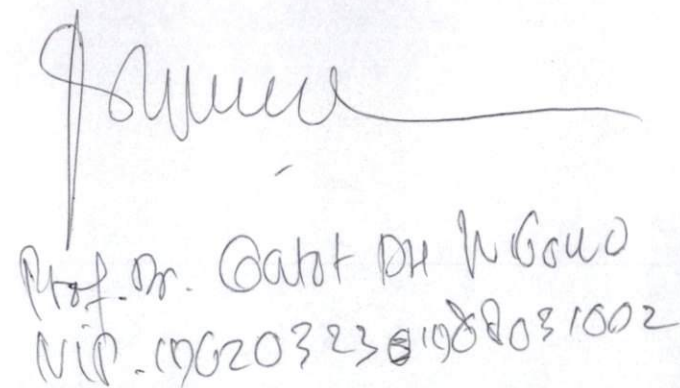 Prof. Dr. Gatot DH Wibowo
NIP. 19620323 198803 1002